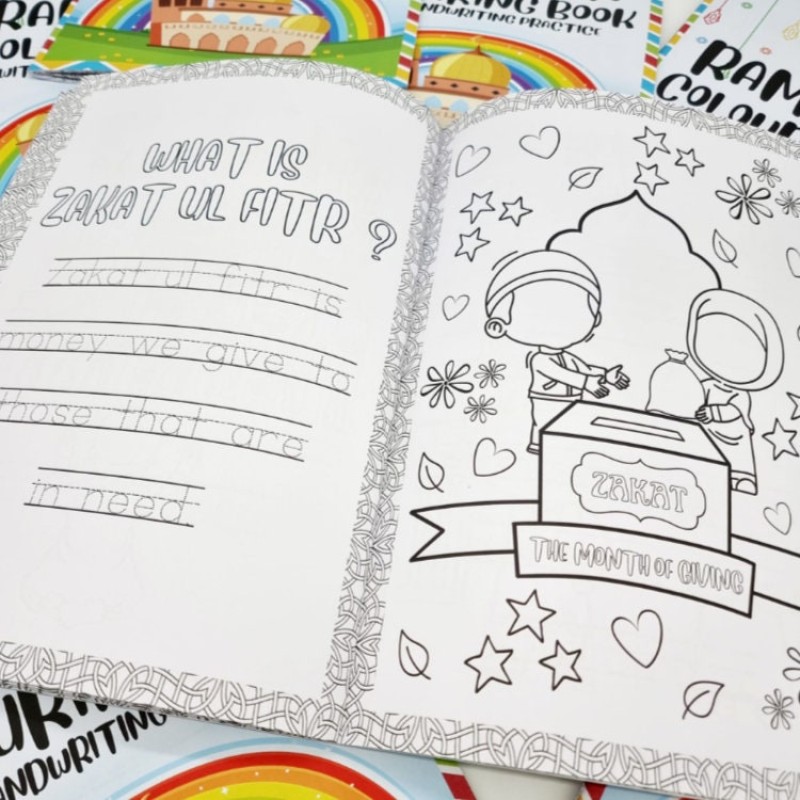 BOOK
NDWRITING PRACTICE
RAM
COLOU
WHAT IS
ZAKAT UL FITR ?
Zakat ul fitr is
money we give to
those that are
in need.
ZAKAT
THE MONTH OF GIVING
NDWRITING